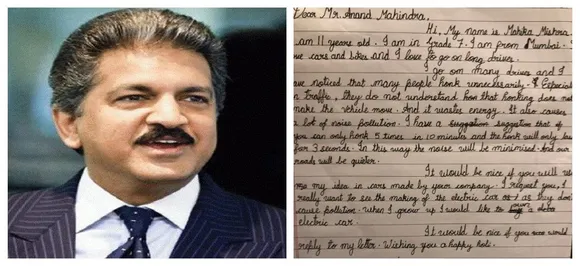 Dear Mr. Anand Mahindra,
Hi, My name is Mahika Mishra.
am 11 years old. I am in Grade 7. I am from Mumbai.
ve cars and bikes and I love to go on long drives.
I go on many drives and I
ave noticed that many people honk unnecessarily. Especial
n traffic, they do not understand that honking does not
make the vehicle move. And it wastes energy. It also causes
lot of noise pollution. I have a suggestion that
you can only honk 5 times in 10 minutes and the honk will only
for 3 seconds. In this way the noise will be minimised. And our
roads will be quieter.
It would be nice if you will
my idea in cars made by your company. I request you, I
really want to see the making of the electric car as they don't
cause pollution. When I grow up I would like to own a
electric car.
It would be nice if you would
reply to my letter. Wishing you a happy holi.